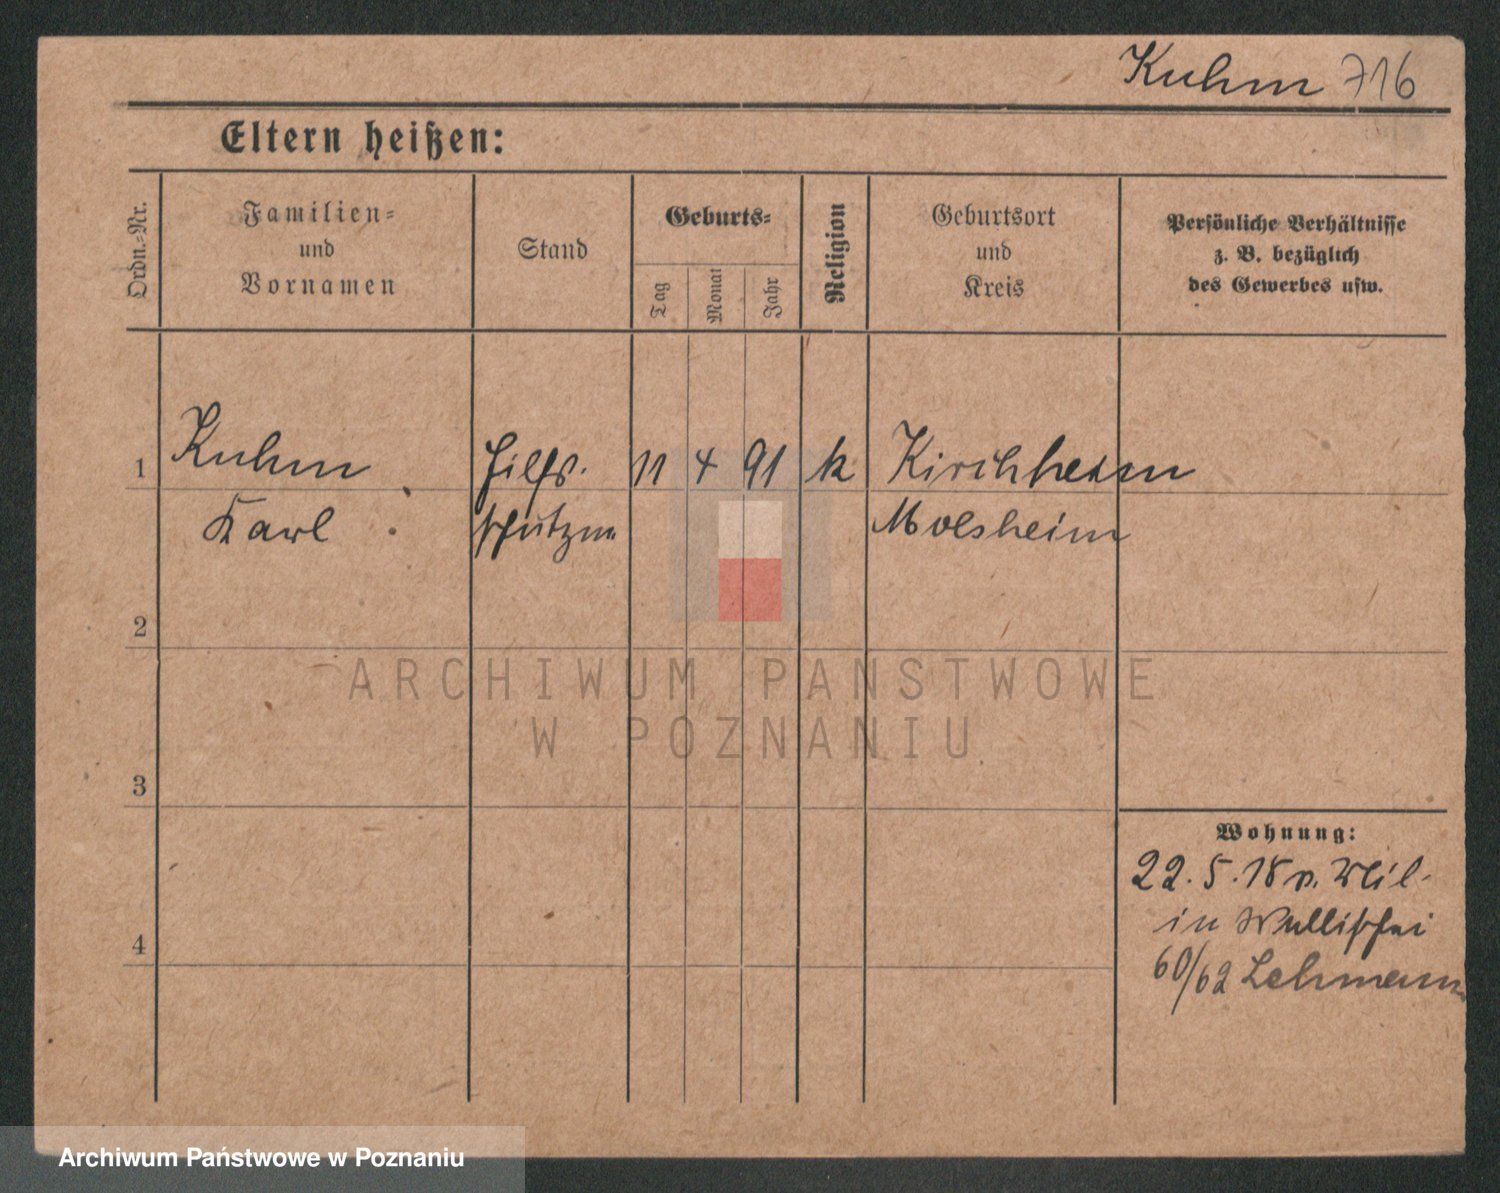 Kuhm 716
Eltern heißen:
Ordn.-Nr.
Familien-
und
Vornamen
Stand
Geburts-
Tag
Monat
Jahr
Religion
Geburtsort
und
Kreis
Persönliche Verhältnisse
z. B. bezüglich
des Gewerbes usw.
1
Kuhm
Hilfs.
11
4
91
k
Kirchheim
Karl
schutzm.
Molsheim
2
ARCHIWUM PANSTWOWE
W POZNANIU
3
4
Wohnung:
22. 5. 18 v. Mil.
in
60/62 Lehmann
Archiwum Państwowe w Poznaniu